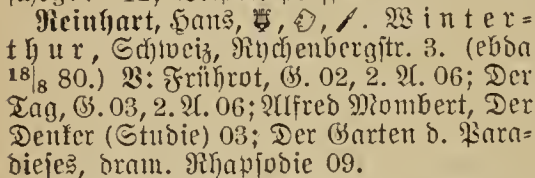 Reinhart, Hans, Winter=
thur, Schweiz, Rychenbergstr. 3. (ebda
18|8 80.) V: Frührot, G. 02, 2. A. 06; Der
Tag, G. 03, 2. A. 06; Alfred Mombert, Der
Denker (Studie) 03; Der Garten d. Para=
dieses, dram. Rhapsodie 09.